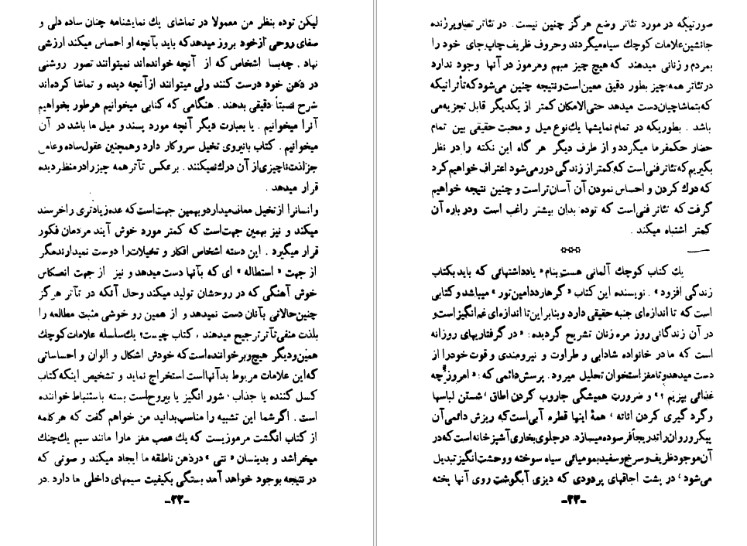 لیکن توده بنظر من معمولا در تماشای یك نمایشنامه چنان ساده دلی و
صفای روحی ازخود بروز میدهدکه باید بآنچه او احساس میکند ارزشی
نهاد. چه‌بسا اشخاص که از آنچه خوانده‌اند نمیتوانند تصور روشنی
در ذهن خود درست کنند ولی میتوانند ازآنچه دیده و تماشا کرده‌اند
شرح نسبتاً دقیقی بدهند. هنگامی که کتابی میخوانیم هرطور بخواهیم
آنرا میخوانیم. یا بعبارت دیگر آنچه مورد پسند و میل ما باشد در آن
میخوانیم. کتاب بانیروی تخیل سروکار دارد وهمچنین عقول‌ساده وعامی
جزلذت‌ناچیزی ازآن درك‌نمیکنند. برعکس تآتر همه چیز را در منظر دیده
قرار میدهد.
وانسانرا از تخیل معاف میدارد و بهمین جهت‌است‌که عده‌زیادتری راخرسند
میکند و نیز بهمین جهت‌است که کمتر مورد خوش آیند مردمان فکور
قرار میگیرد. این دسته اشخاص افکار و تخیلات را دوست نمیدارند مگر
از جهت « استطاله » ای که بآنها دست میدهد و نیز از جهت انعکاس
خوش آهنگی که در روحشان تولید میکند وحال آنکه در تآتر هرگز
چنین‌حالاتی بآنان دست نمیدهد و از همین رو خوشی مثبت مطالعه را
بلذت منفی‌تآتر ترجیح میدهند، کتاب چیست؟ یك‌سلسله علامات‌کوچك
همین‌ودیگر هیچ‌وبرخواننده‌است‌که خودش اشکال و الوان و احساساتی
که‌این علامات مربوط بدآنهااست استخراج نماید و تشخیص اینکه‌کتاب
کسل کننده یا جذاب، شور انگیز یا بیروح‌است بسته باستنباط خواننده
است. اگرشما این تشبیه را مناسب‌بدانید من خواهم گفت که هرکلمه
از کتاب انگشت مرموزیست که یك عصب مغز مارا مانند سیم یك‌چنك
میخراشد و بدینسان « نتی » درذهن ناطقه ما ایجاد میکند و صوتی که
در نتیجه بوجود خواهد آمد بستگی بکیفیت سیمهای داخلی ما دارد. در
-۲۲-
صورتیکه در مورد تئاتر وضع هرگز چنین نیست. در تئاتر تصاویر زنده
جانشین‌علامات کوچك سیاه میگردند و حروف ظریف چاپ جای خود را
بمردم و زنانی میدهند که هیچ چیز مبهم و هرموز در آنها وجود ندارد
درتئاتر همه‌چیز بطور دقیق معین‌است ونتیجه چنین می‌شودکه تأثراتیکه
بتماشاچیان‌دست میدهد حتی‌الامکان کمتر از یکدیگر قابل تجزیه می
باشد. بطوریکه در تمام نمایشها یك‌نوع میل و محبت حقیقی بین تمام
حضار حکمفرما میگردد و از طرف دیگر هر گاه این نکته را در نظر
بگیریم‌که تئاتر فنی‌است‌که‌کمتر از زندگی دور می‌شود اعتراف خواهیم‌کرد
که درك کردن و احساس نمودن آن آسان‌تر است و چنین نتیجه خواهیم
گرفت که تئاتر فنی‌است که توده بدان بیشتر راغب است ودرباره آن
کمتر اشتباه میکند.
***
یك کتاب کوچك آلمانی هست بنام « یادداشتهائی که باید بکتاب
زندگی افزود ». نویسنده این کتاب « گرهارددامین‌تور » میباشد و کتابی
است که تا اندازه‌ای جنبه حقیقی دارد وبنابراین‌تا اندازه‌ای غم‌انگیزاست‌و
در آن زندگانی روز مره زنان تشریح گردیده: « در گرفتاریهای روزانه
است که مادر خانواده شادابی و طراوت و نیرومندی و قوت خودرا از
دست میدهد و تا مغز استخوان تحلیل میرود. پرسش‌دائمی که « امروز چه
غذائی بپزیم ؟ » و ضرورت همیشگی جاروب کردن اطاق، شستن لباسها
و گرد گیری کردن اثاثه، همهٔ اینها قطره آبی‌است که ریزش دائمی‌آن
پیکروروان‌راتدریجاً فرسوده‌میسازد. درجلوی‌بخاری‌آشپزخانه‌است‌که‌در
آن‌موجود ظریف وسرخ‌وسفید بمومیائی سیاه سوخته ووحشت‌انگیز تبدیل
می‌شود، در پشت اجاقهای پردودی که دیزی آبگوشت روی آنها پخته
-۲۳-